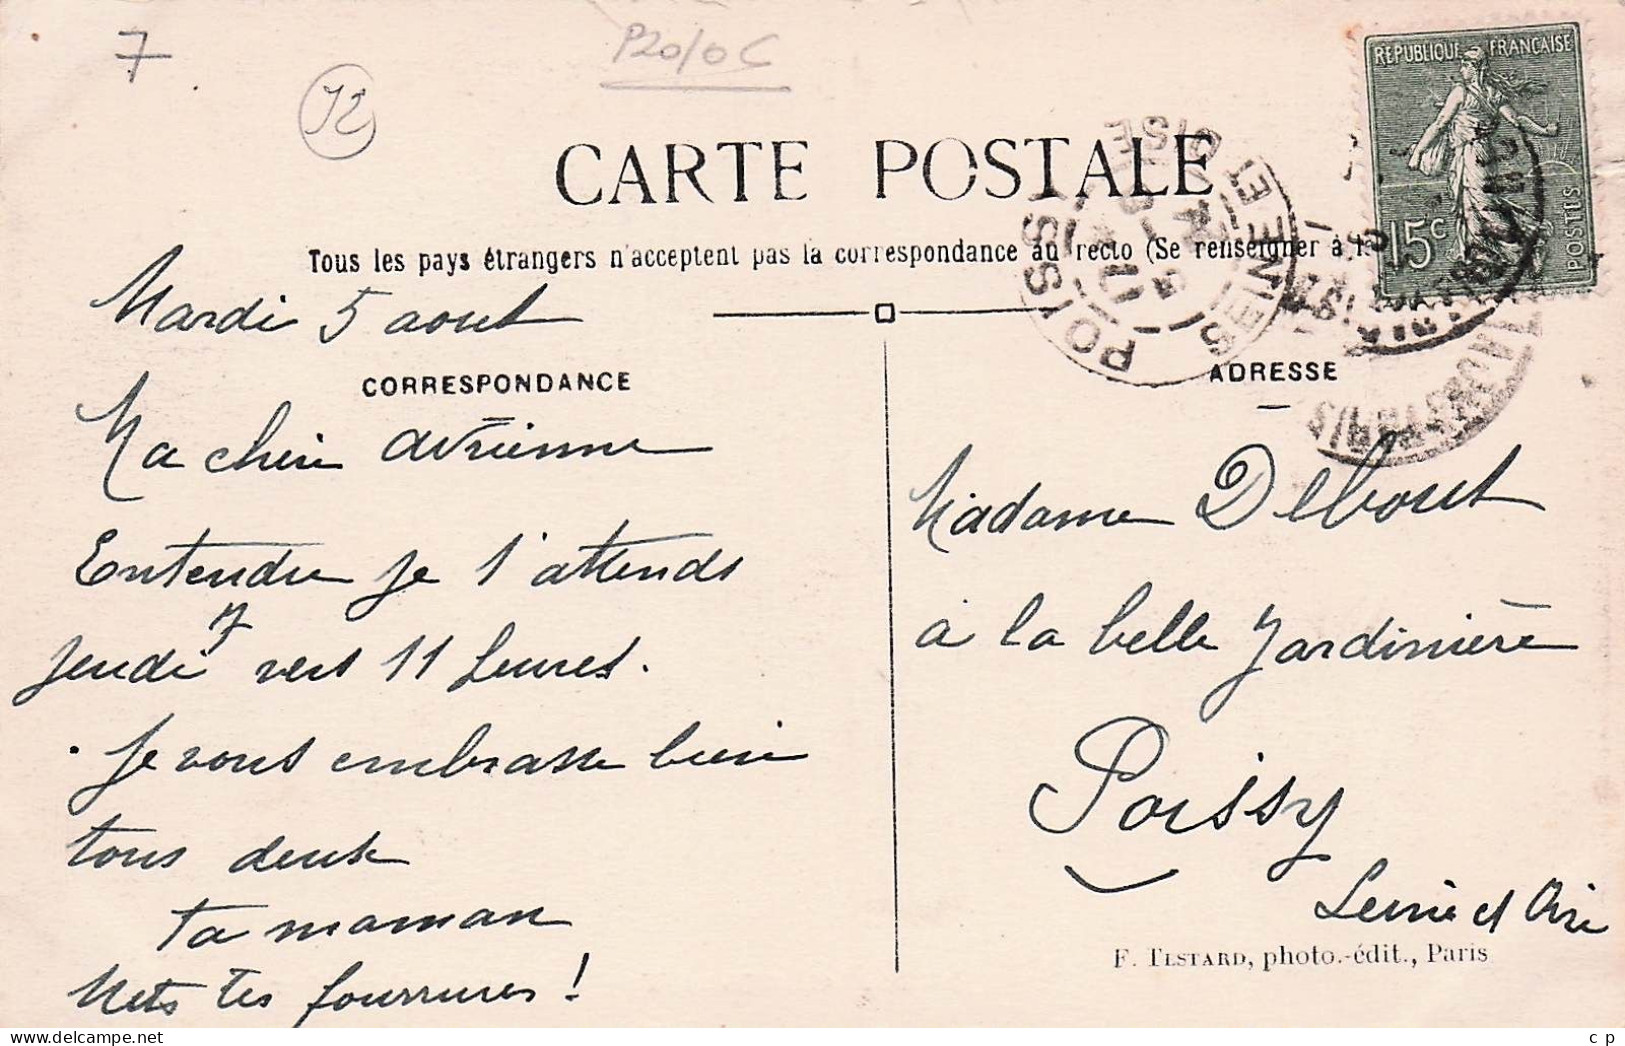 7
72
P20/0C
CARTE POSTALE
REPUBLIQUE FRANÇAISE
15c
POSTES
POISSY
SEINE ET OISE
Tous les pays étrangers n'acceptent pas la correspondance au recto (Se renseigner à la
Mardi 5 aout
CORRESPONDANCE
Ma chère
Entendu je t'attends
jeudi 7 vers 11 heures.
Je vous embrasse bien
tous deux
ta maman
Mets tes fourrures !
ADRESSE
Madame Debout
à la belle Jardinière
Poissy
Seine et Oise
F. TESTARD, photo.-édit., Paris
delcampe.net
c p